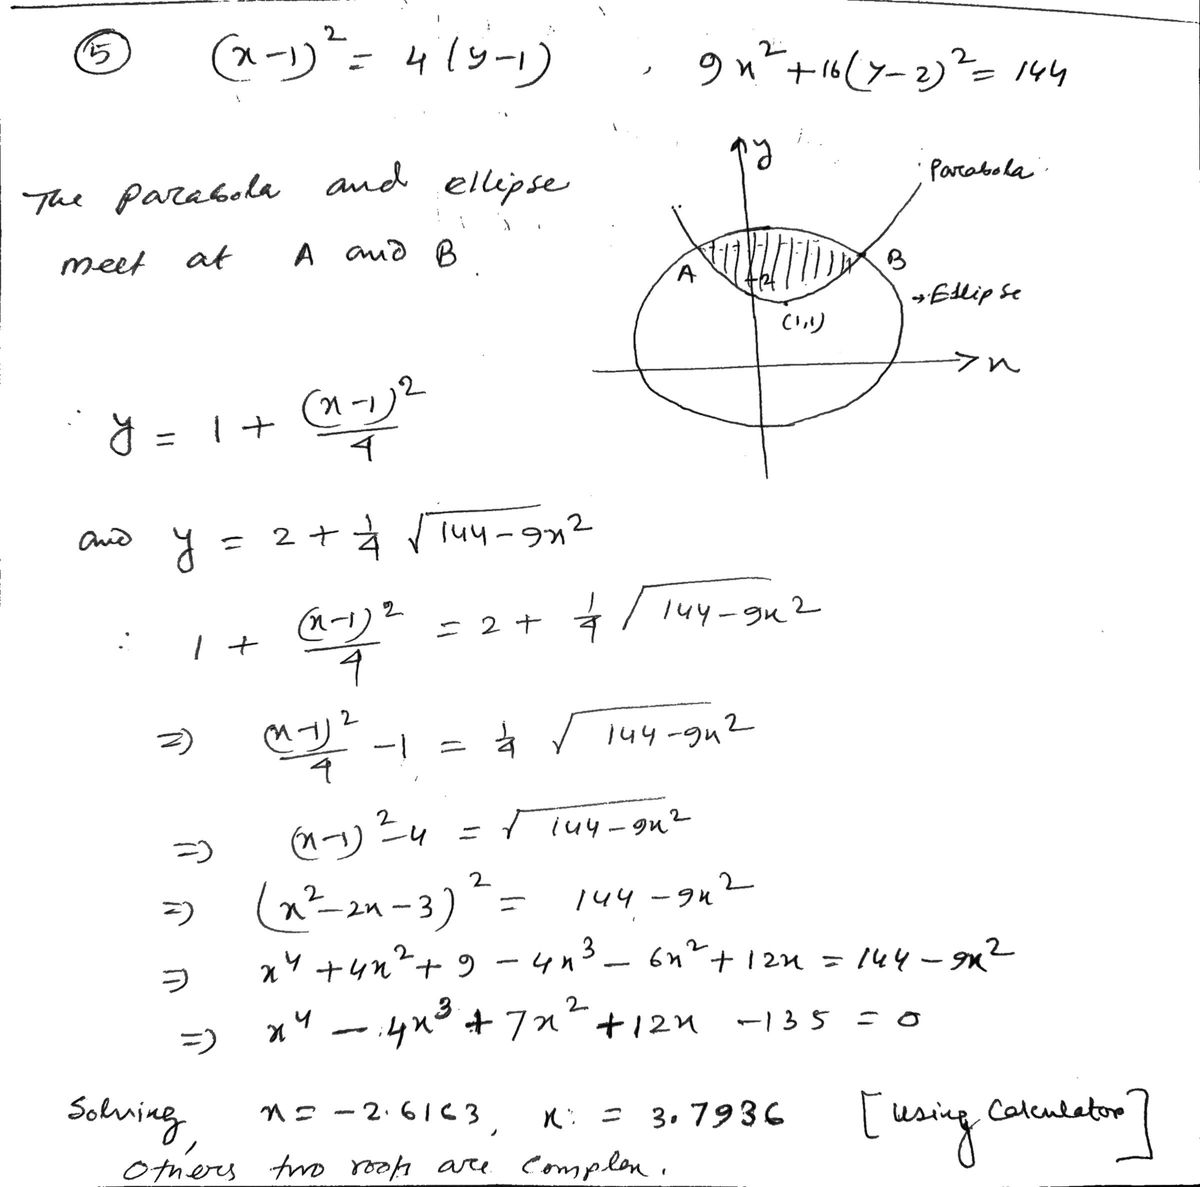 ⑤ (x-1)² = 4(y-1) , 9x² + 16(y-2)² = 144
y
Parabola
The parabola and ellipse
meet at A and B.
A
B
2
→ Ellipse
(1,1)
x
∴ y = 1 + (x-1)²/4
and y = 2 + 1/4 √(144-9x²)
∴ 1 + (x-1)²/4 = 2 + 1/4 √(144-9x²)
⇒ (x-1)²/4 - 1 = 1/4 √(144-9x²)
⇒ (x-1)² - 4 = √(144-9x²)
⇒ (x²-2x-3)² = 144-9x²
⇒ x⁴ + 4x² + 9 - 4x³ - 6x² + 12x = 144 - 9x²
⇒ x⁴ - 4x³ + 7x² + 12x - 135 = 0
Solving, x = -2.6163, x = 3.7936 [using Calculator]
Others two roots are complex.